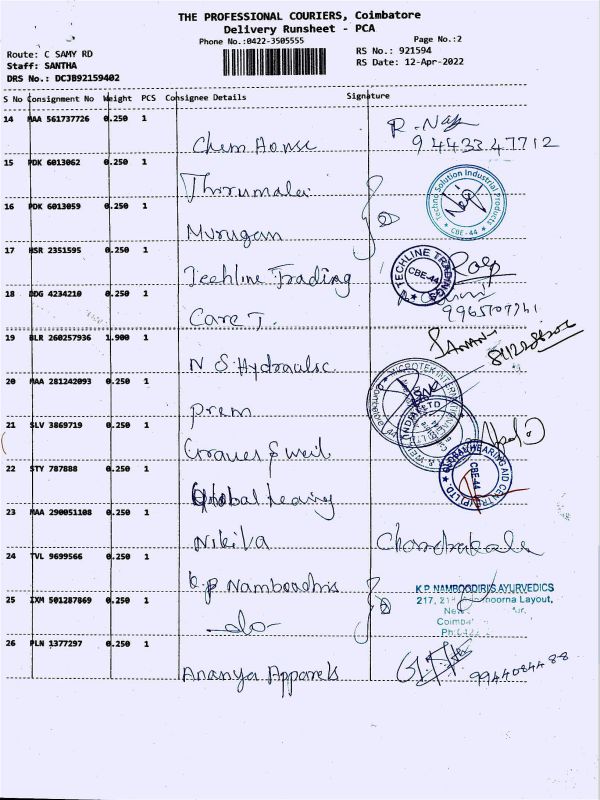 THE PROFESSIONAL COURIERS, Coimbatore
Delivery Runsheet - PCA
Phone No.:0422-3505555
Page No.:2
Route: C SAMY RD
RS No.: 921594
Staff: SANTHA
RS Date: 12-Apr-2022
DRS No.: DCJB92159402
S No Consignment No Weight PCS Consignee Details Signature
14 MAA 561737726 0.250 1
Chem House
R. 
94433 47712
15 PDK 6013062 0.250 1
Thirumalai
Techno Solution Industrial Products
* CBE-44 *
16 PDK 6013059 0.250 1
Murugan
17 HSR 2351595 0.250 1
Techline Trading
TECHLINE TRADINGS
CBE-44
18 DDG 4234210 0.250 1
Care T.
19 BLR 260257936 1.900 1
N S Hydraulic
SANAN
20 MAA 281242093 0.250 1
Prem
MICROTEK INTERNATIONAL
21 SLV 3869719 0.250 1
Groaves & Weil
22 STY 787888 0.250 1
Global hearing
GLOBAL HEARING AID CENTRE (P) LTD
CBE-44
23 MAA 290051108 0.250 1
Nikila
Chandrakala
24 TVL 9699566 0.250 1
K.P Namboodhris
K.P. NAMBOODIRI'S AYURVEDICS
25 IXM 501287869 0.250 1
-do-
217, 21 noorna Layout,
New ur.
Coimbat
Ph:
26 PLN 1377297 0.250 1
Ananya Apparels
9944084488